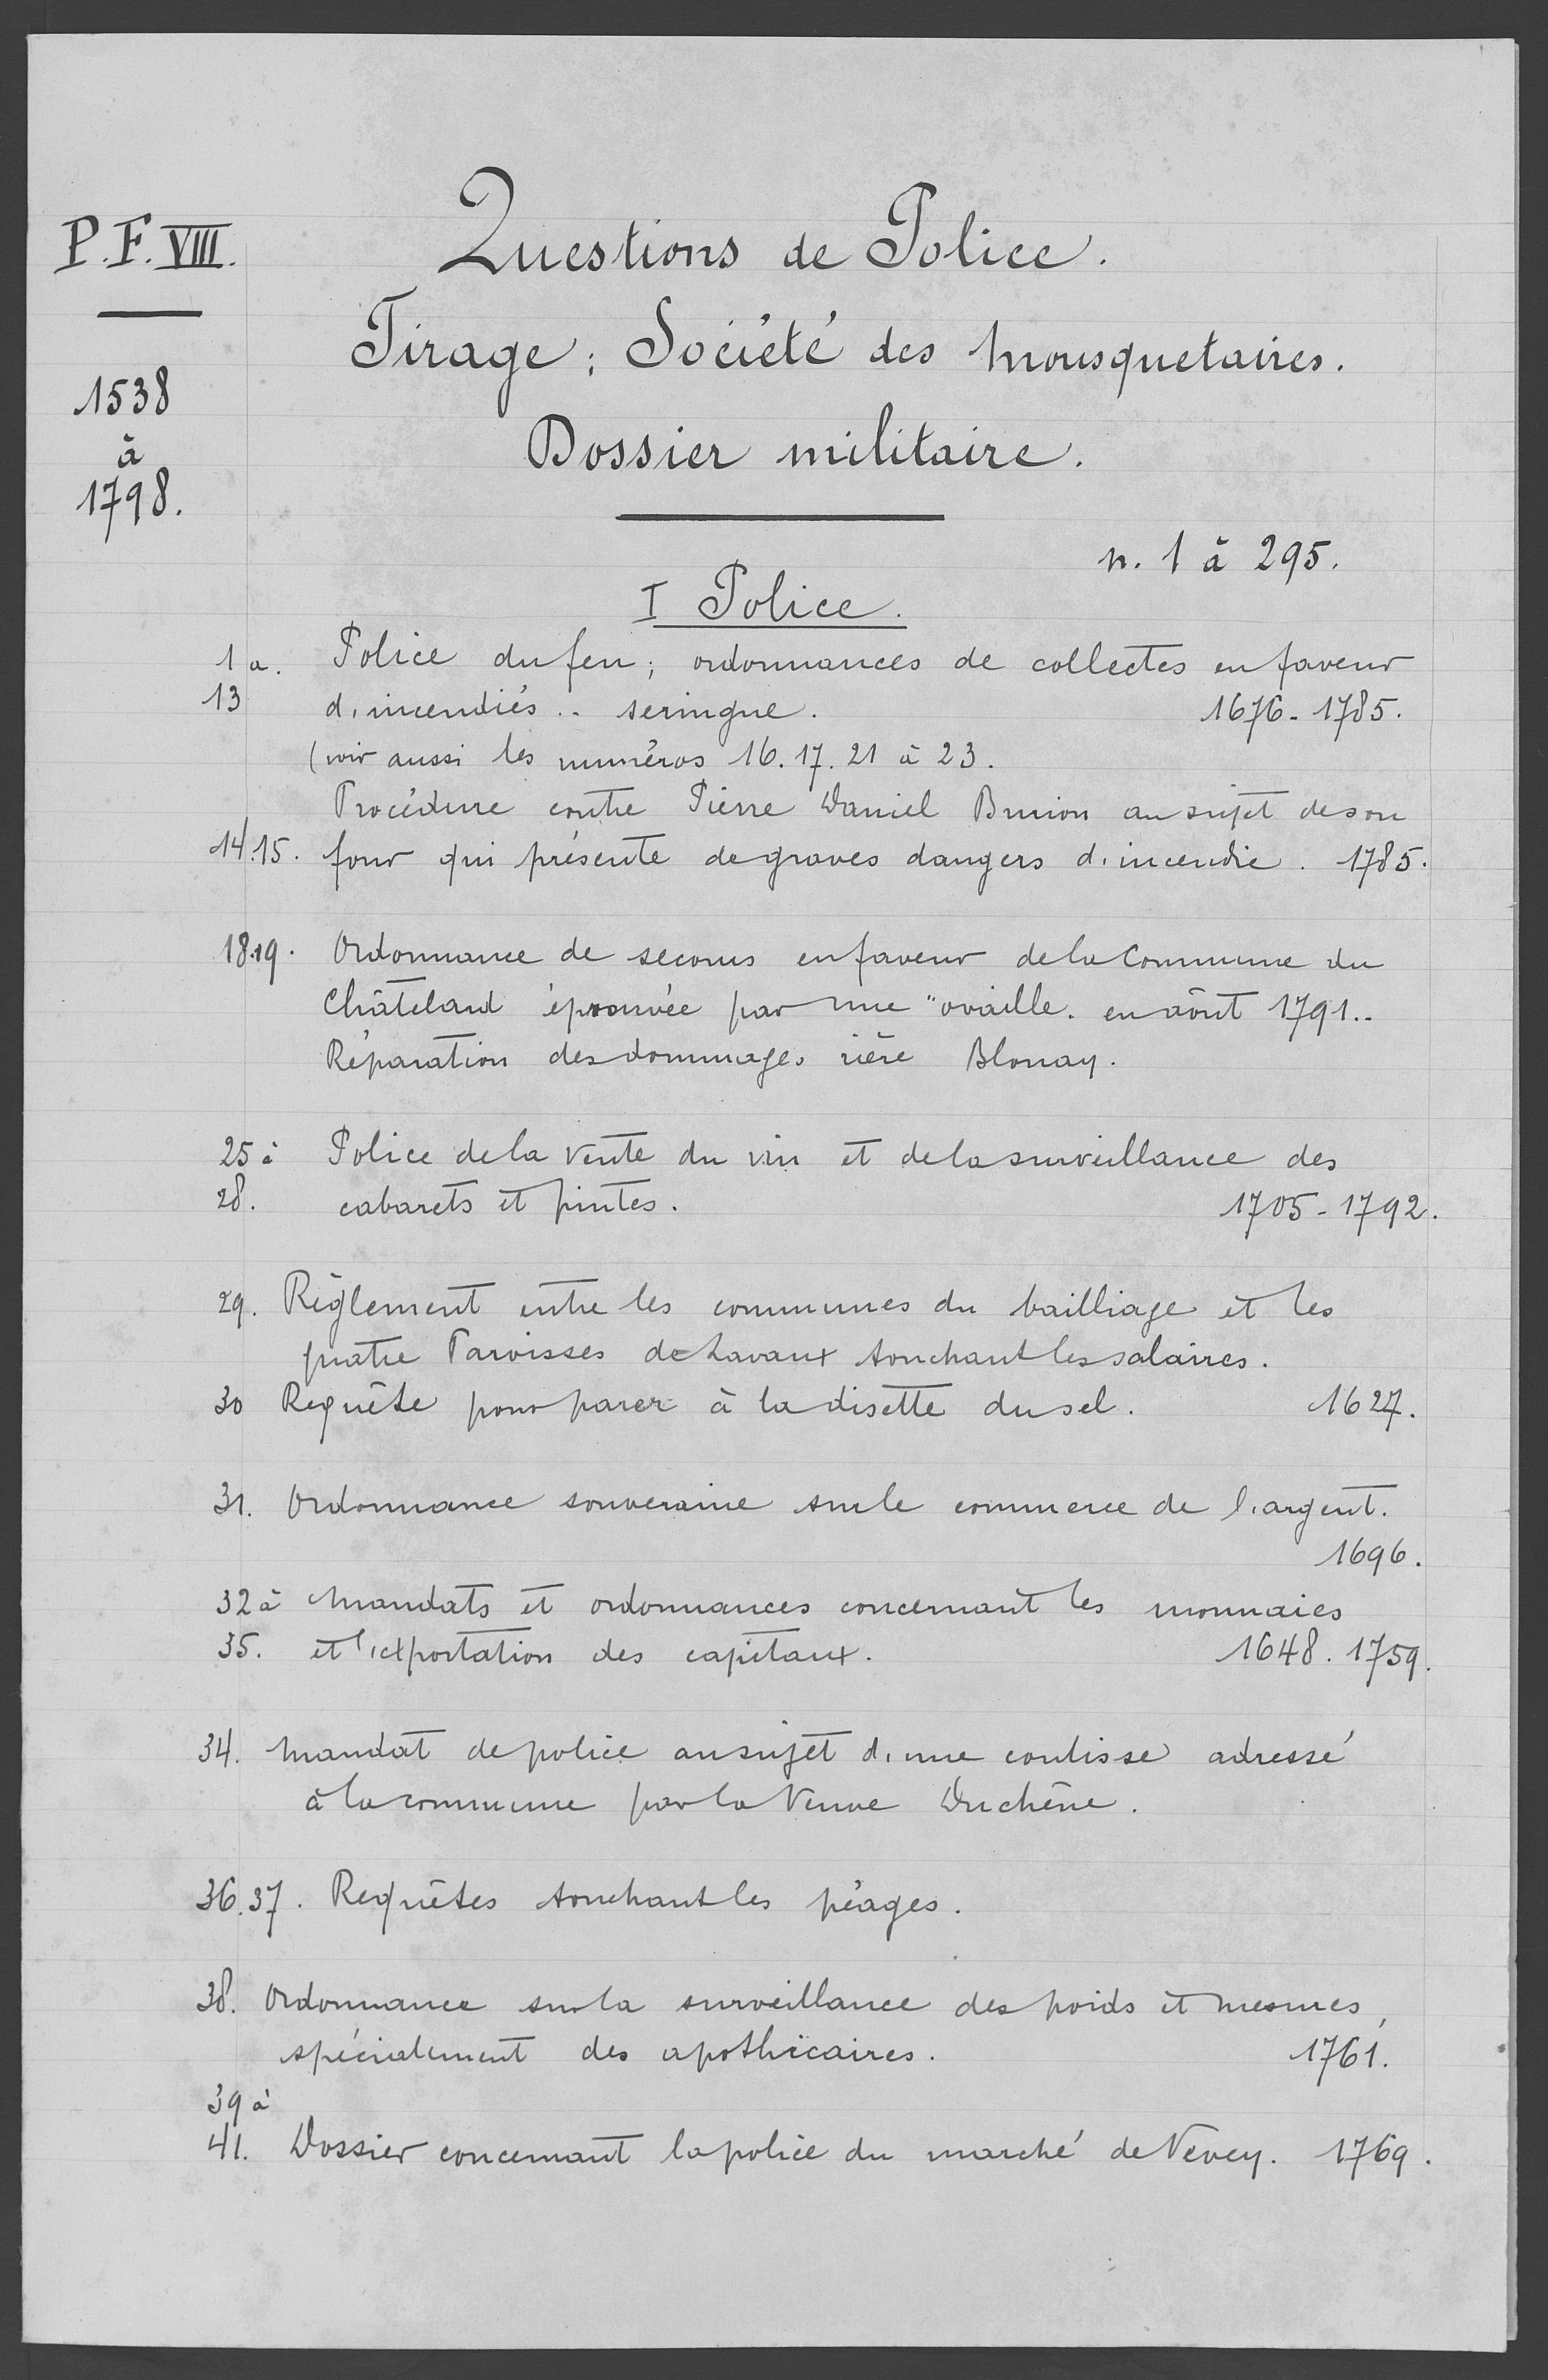 P.F. VIII.
1538
à
1798.
Questions de Police.
Tirage; Société des Mousquetaires.
Dossier militaire.
n. 1 à 295.
I Police.
1 a. Police du feu; ordonnances de collectes en faveur
13 d'incendiés.. seringue. 1676-1785.
(voir aussi les numéros 16.17.21 à 23.
Procédure contre Pierre Daniel Brurion au sujet de son
14.15. four qui présente de graves dangers d'incendie. 1785.
18.19. Ordonnance de secours en faveur de la Commune du
Châtelard éprouvée par une "ovaille. en août 1791..
Réparation des dommages rière Blonay.
25 à Police de la vente du vin et de la surveillance des
28. cabarets et pintes. 1705-1792.
29. Règlement entre les communes du bailliage et les
quatre Paroisses de Lavaux touchant les salaires.
30 Requête pour parer à la disette du sel. 1627.
31. Ordonnance souveraine sur le commerce de l'argent.
1696.
32 à Mandats et ordonnances concernant les monnaies
35. et l'exportation des capitaux. 1648. 1759.
34. Mandat de police au sujet d'une coulisse adressé
à la commune par la Veuve Duchêne.
36.37. Requêtes touchant les péages.
38. Ordonnance sur la surveillance des poids et mesures,
spécialement des apothicaires. 1761.
39 à
41. Dossier concernant la police du marché de Vevey. 1769.